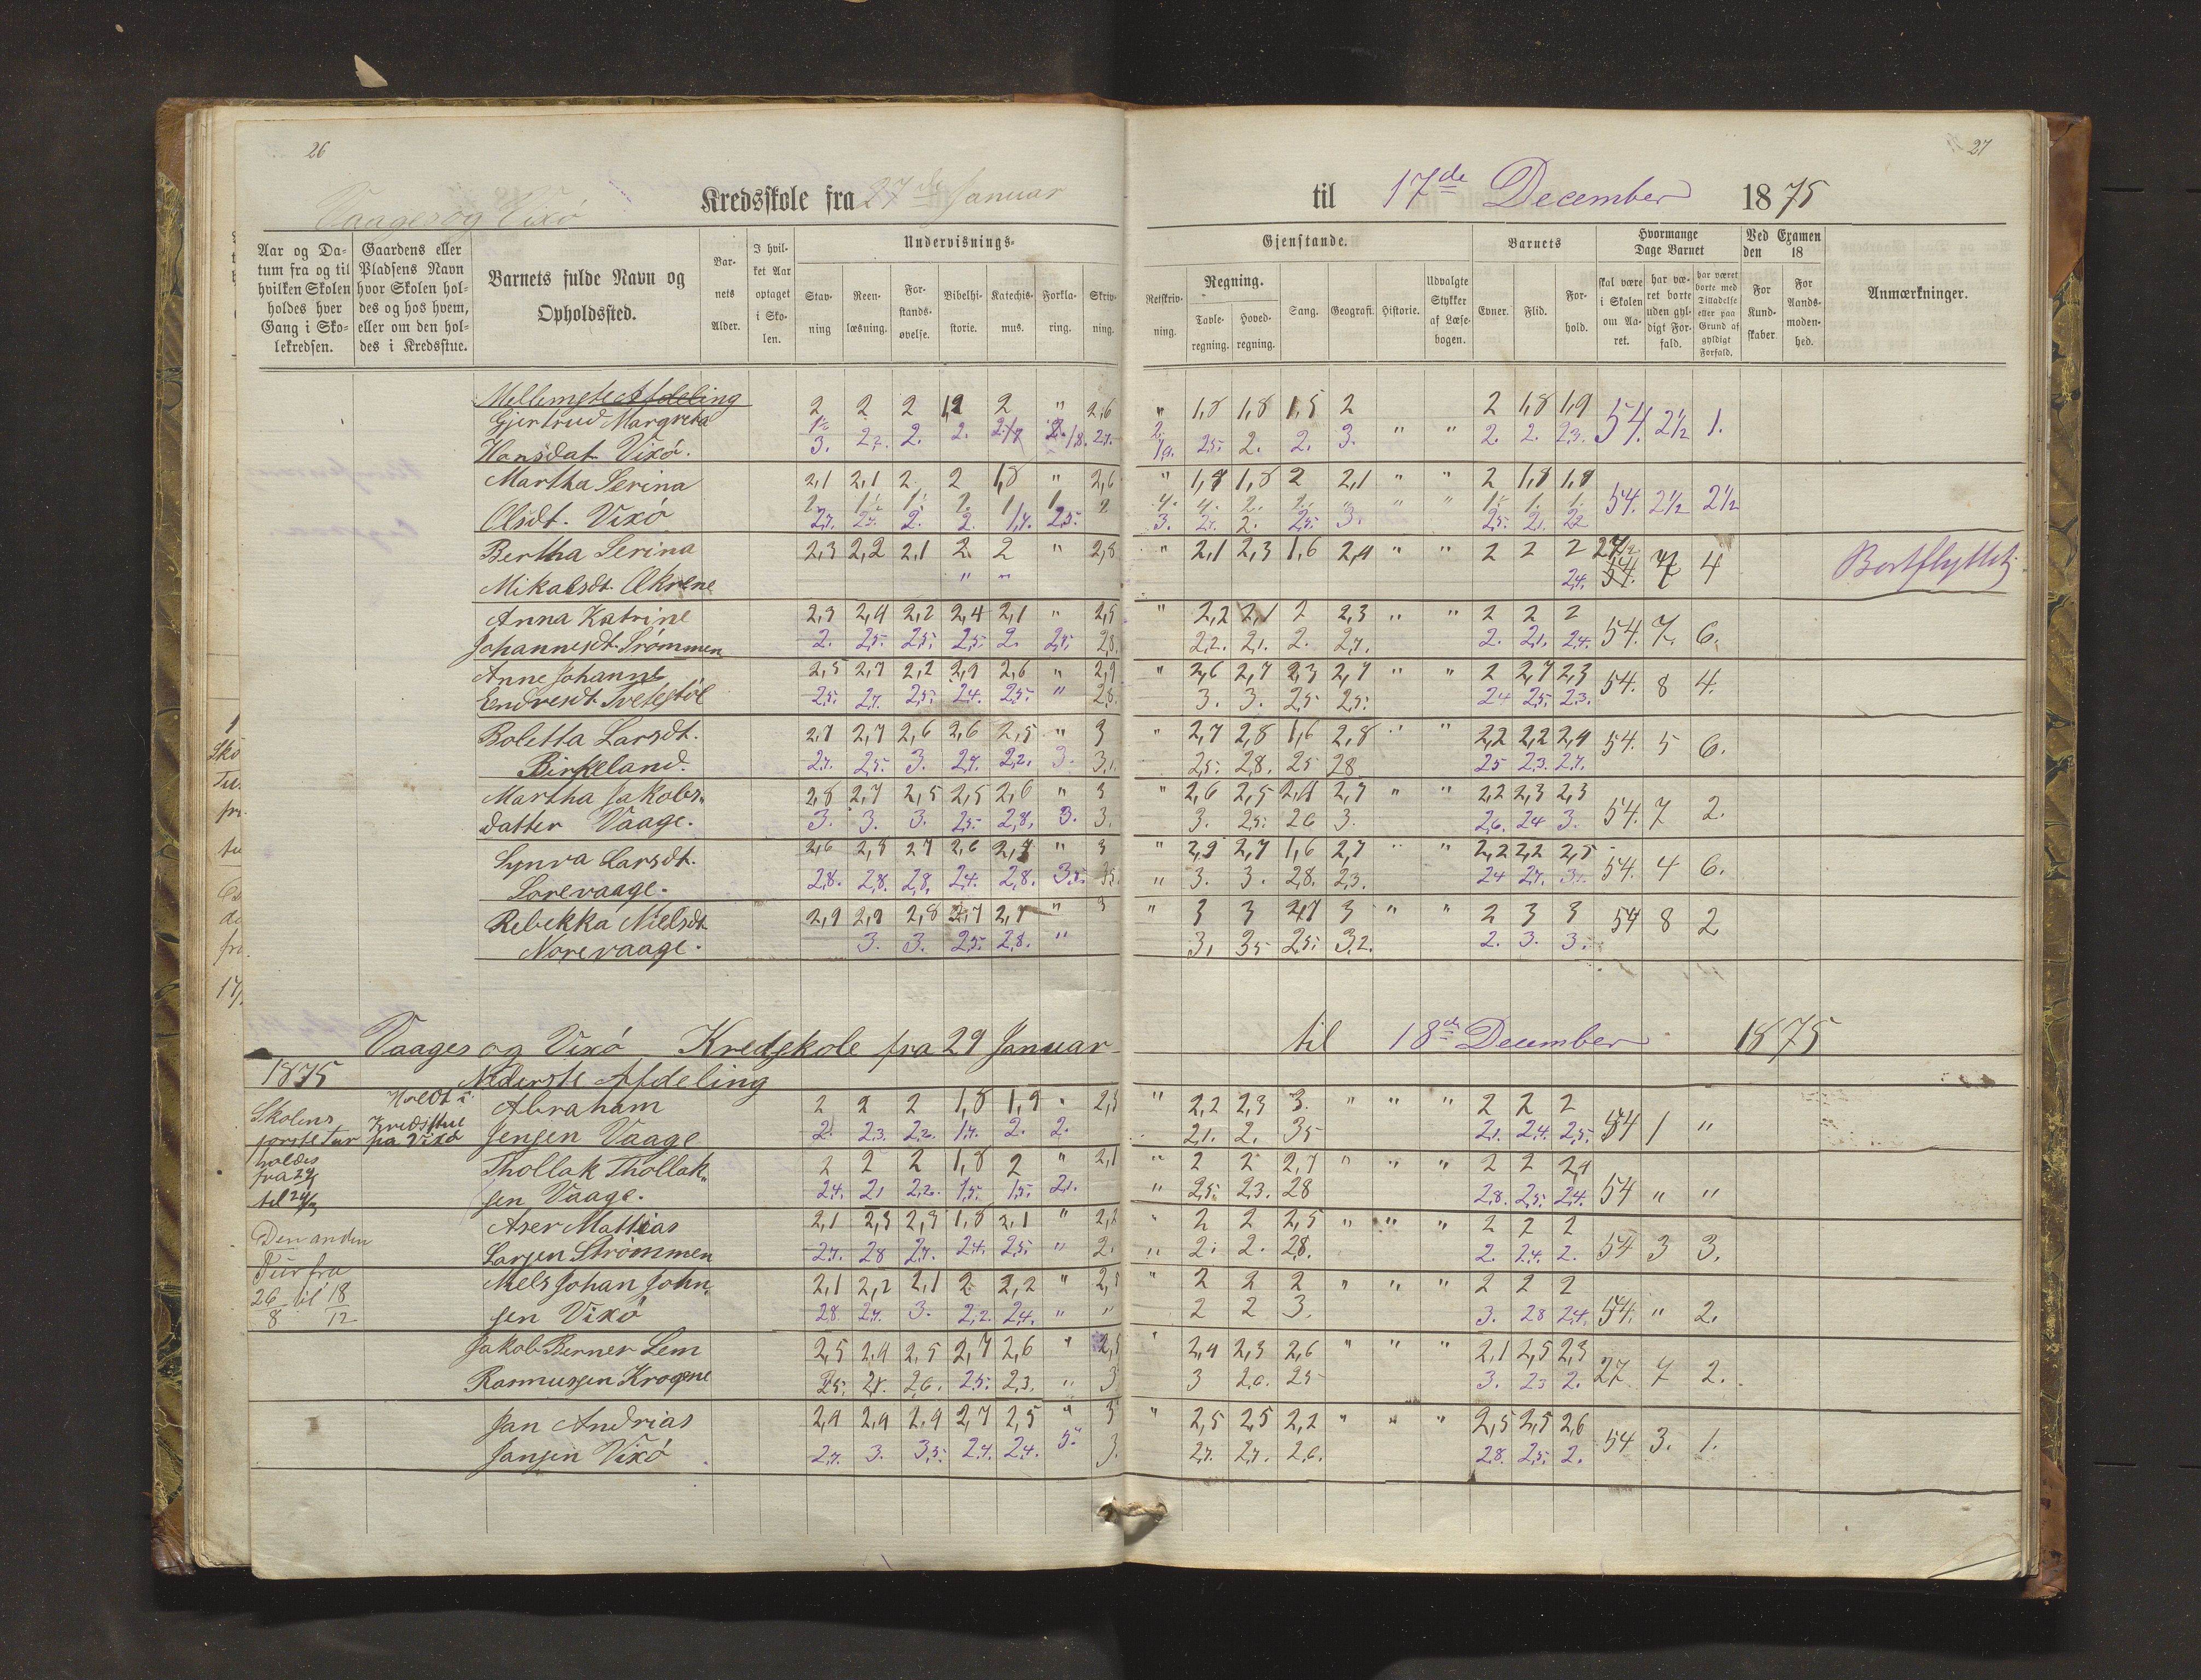 26
27
Vaages og Vixø Kredsskole fra 27de Januar til 17de December 1875
Aar og Datum fra og til hvilken Skolen holdes hver Gang i Skolekredsen.
Gaardens eller Pladsens Navn hvor Skolen holdes og hos hvem, eller om den holdes i Kredsstue.
Barnets fulde Navn og Opholdssted.
Barnets Alder.
I hvilket Aar optaget i Skolen.
Undervisnings-
Gjenstande.
Stavning
Reenlæsning.
Forstandsøvelse.
Bibelhistorie.
Katechismus.
Forklaring.
Skrivning.
Retskrivning.
Regning.
Tavleregning.
Hovedregning.
Sang.
Geografi.
Historie.
Udvalgte Stykker af Læsebogen.
Barnets
Evner.
Flid.
Forhold.
Hvormange Dage Barnet
skal være i Skolen om Aaret.
har været borte uden gyldigt Forfald.
har været borte med Tilladelse eller paa Grund af gyldigt Forfald.
Ved Examen den 18
For Kundskaber
For Aandsmodenhed.
Anmærkninger.
Mellemste Afdeling
Gjertrud Margreta 2 2 2 1,2 2 " 2,6 " 1,8 1,8 1,5 2 2 1,8 1,9 54. 2½ 1.
Hansdat Vixø. 3. 2. 2. 2. 2. 3. " " 2. 2. 2.3.
Martha Serina 2,1 2,1 2 2 1,8 " 2,6 " 1,8 1,8 2 2,1 " " 2 1,8 1,8 54. 2½ 2½
Olsdt. Vixø 2. 2. 3. 2. 3.
Bertha Serina 2,3 2,2 2,1 2 2 " 2,8 " 2,1 2,3 1,6 2,4 " " 2 2 2 27 7 4 Bortflyttet.
Mikalsdt. Økrene " " 2,4. 54.
Anna Katrine 2,3 2,4 2,2 2,4 2,1 " 2,5 " 2,2 2,1 2 2,3 " " 2 2 2 54. 7. 6.
Johannesdt. Strømmen 2. 2,5. 2,5. 2,5. 2. 2,8. 2,2. 2,1. 2. 2,7. 2. 2,1. 2,4.
Anne Johanne 2,5 2,7 2,2 2,9 2,6 " 2,9 " 2,6 2,7 2,3 2,7 " " 2 2,7 2,3 54. 8 4.
Endresdt. Tvetestøl 2,5. 2,7. 2,5. 2,4. 2,5. " 2,8. 3. 3. 2,5 2,5. 2,4 2,5. 2,3.
Boletta Larsdt. 2,7 2,7 2,6 2,6 2,5 " 3 " 2,7 2,8 1,6 2,8 " " 2,2 2,2 2,4 54. 5 6.
Birkeland. 2,7. 2,5. 3. 2,7. 2,2. 3. 3,1. 2,5. 2,8. 25 28 25 2,3. 2,7.
Martha Jakobs- 2,8 2,7 2,5 2,5 2,6 " 3 " 2,6 2,5 2,4 2,7 " " 2,2 2,3 2,3 54. 7 2.
datter Vaage. 3. 3. 3. 2,5. 2,8. 3. 3. 3. 2,5. 26 3. 2,6. 24 3.
Synva Larsdt. 2,6 2,8 2,7 2,6 2,7 " 3 " 2,9 2,7 1,6 2,7 " " 2,2 2,2 2,5 54. 4 6.
Sørevaage. 2,8. 2,8. 2,8. 2,4. 2,8. 3. 3,5. " 3. 3. 2,8. 2,3. 24 2,7. 3.
Rebekka Nielsdt 2,9 2,9 2,8 2,7 2,7 " 3 " 3 3 2,7 3 " " 2 3 3 54 8 2
Norevaage. 3. 3. 2,5. 2,8. " 3. 35 2,5. 3,2. 2. 3. 3.
Vaages og Vixø Kredskole fra 29 Januar til 18de December 1875
1875 Nederste Afdeling
Skolens Holdt i Abraham 2 2 2 1,8 1,9 " 2,3 " 2,2 2,3 3. " " " 2 2 2 54 1 "
første Tur Kredsstue paa Vixø Jensen Vaage 2. 2,3. 2,2. 1,7. 2. 2. 2,1. 2. 35 2,1. 2,4. 2,5.
holdes
fra 29/1 Thollak Thollak- 2 2 2 1,8 2 " 2,1 " 2 2 2,7 " " " 2 2 2,4 54 " "
til sen Vaage. 2,4. 2,1 2,2. 1,5. 1,5. 2,1. " 2,5. 2,3. 28 2,8. 2,5. 2,4.
Den anden Aser Mattias 2,1 2,3 2,3 1,8 2,1 " 2,2 " 2 2 2,5 " " " 2 2 2 54 3 3.
Tur fra Larsen Strømmen 2,7. 28 2,7. 2,4. 2,5. " 2. " 2. 2. 28. 2. 2,4. 2.
26/8 til 18/12 Niels Johan John- 2,1 2,2 2,1 2 2,2 " 2,5 " 2 2 2 " " " 2 2 2 54. " 2.
sen Vixø 28. 2,7. 3. 2,2. 2,4. " " 2 2 3. 3. 28 2,4.
Jakob Berner Lem 2,5 2,4 2,5 2,7 2,6 " 2,5 " 2,4 2,3 2,6 " " " 2,1 2,5 2,3 27 7 2.
Rasmussen Krogene 2,5. 2,6. 2,5. 2,3. " 3 3 2,6. 25 3. 23 2.
Jan Andrias 2,9 2,9 2,9 2,7 2,5 " 3 " 2,5 2,5 2,2 " " " 2,5 2,5 2,6 54 3. 1.
Jansen Vixø 2,7. 3. 3,5. 2,7. 2,4. 3. 2,7. 2,7. 2,6. 28. 2,5. 2.